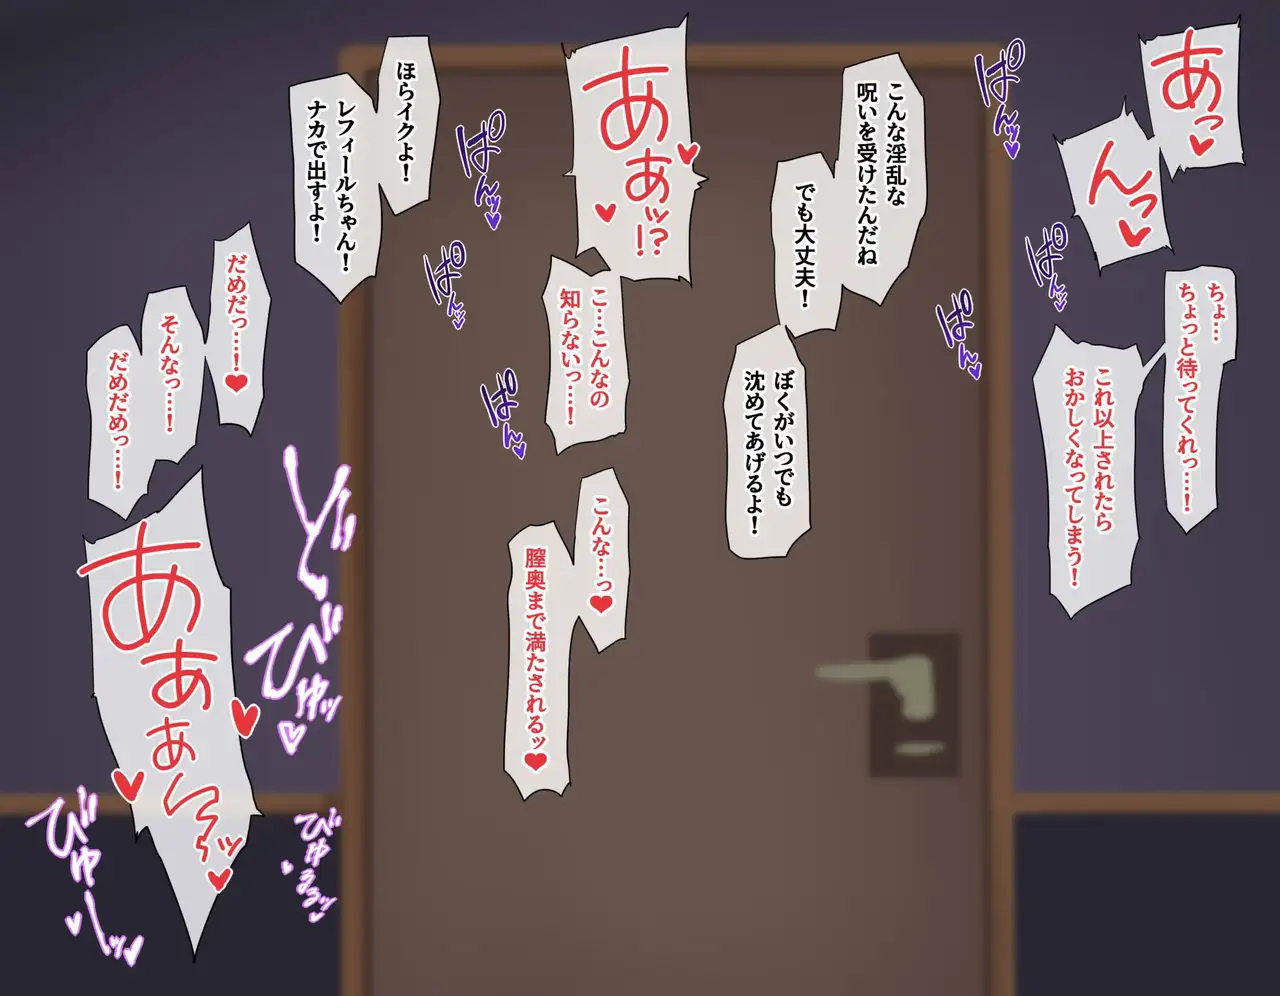 あっ♥
んっ♥
ちょ…
ちょっと待ってくれっ…!
これ以上されたら
おかしくなってしまう!
ぱんッ♥
ぱんッ♥
ぱんッ♥
こんな淫乱な
呪いを受けたんだね
でも大丈夫!
ぼくがいつでも
沈めてあげるよ!
あぁッ!?♥♥
こ…こんなの
知らないっ…!
こんな…っ♥
膣奥まで満たされるッ♥
ぱんッ♥
ぱんッ♥
ぱんッ♥
ほらイクよ!
レフィールちゃん!
ナカで出すよ!
だめだっ…!♥
そんなっ…!
だめだめっ…!
どッ
びゅーッ♥
びゅるるッ♥
あぁぁ〜〜ッ♥♥♥
びゅーッ♥♥